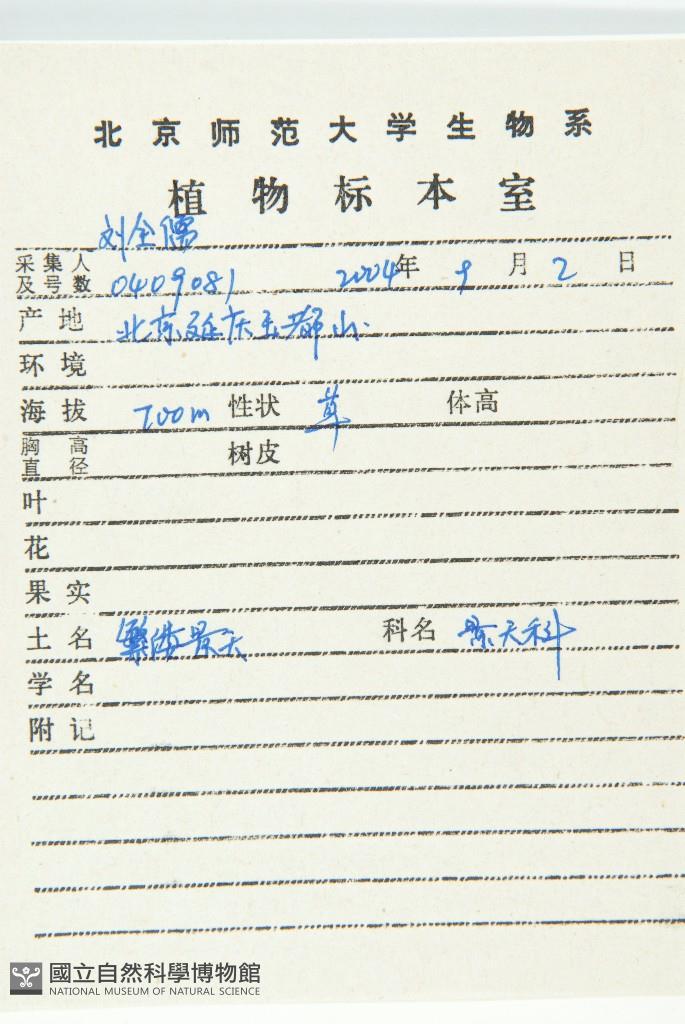 北京师范大学生物系
植物标本室
刘全儒
采集人及号数 0409081 2004年9月2日
产地 北京延庆玉都山
环境
海拔 700m 性状 草 体高
胸高直径 树皮
叶
花
果实
土名 繁缕景天 科名 景天科
学名
附记
國立自然科學博物館
NATIONAL MUSEUM OF NATURAL SCIENCE